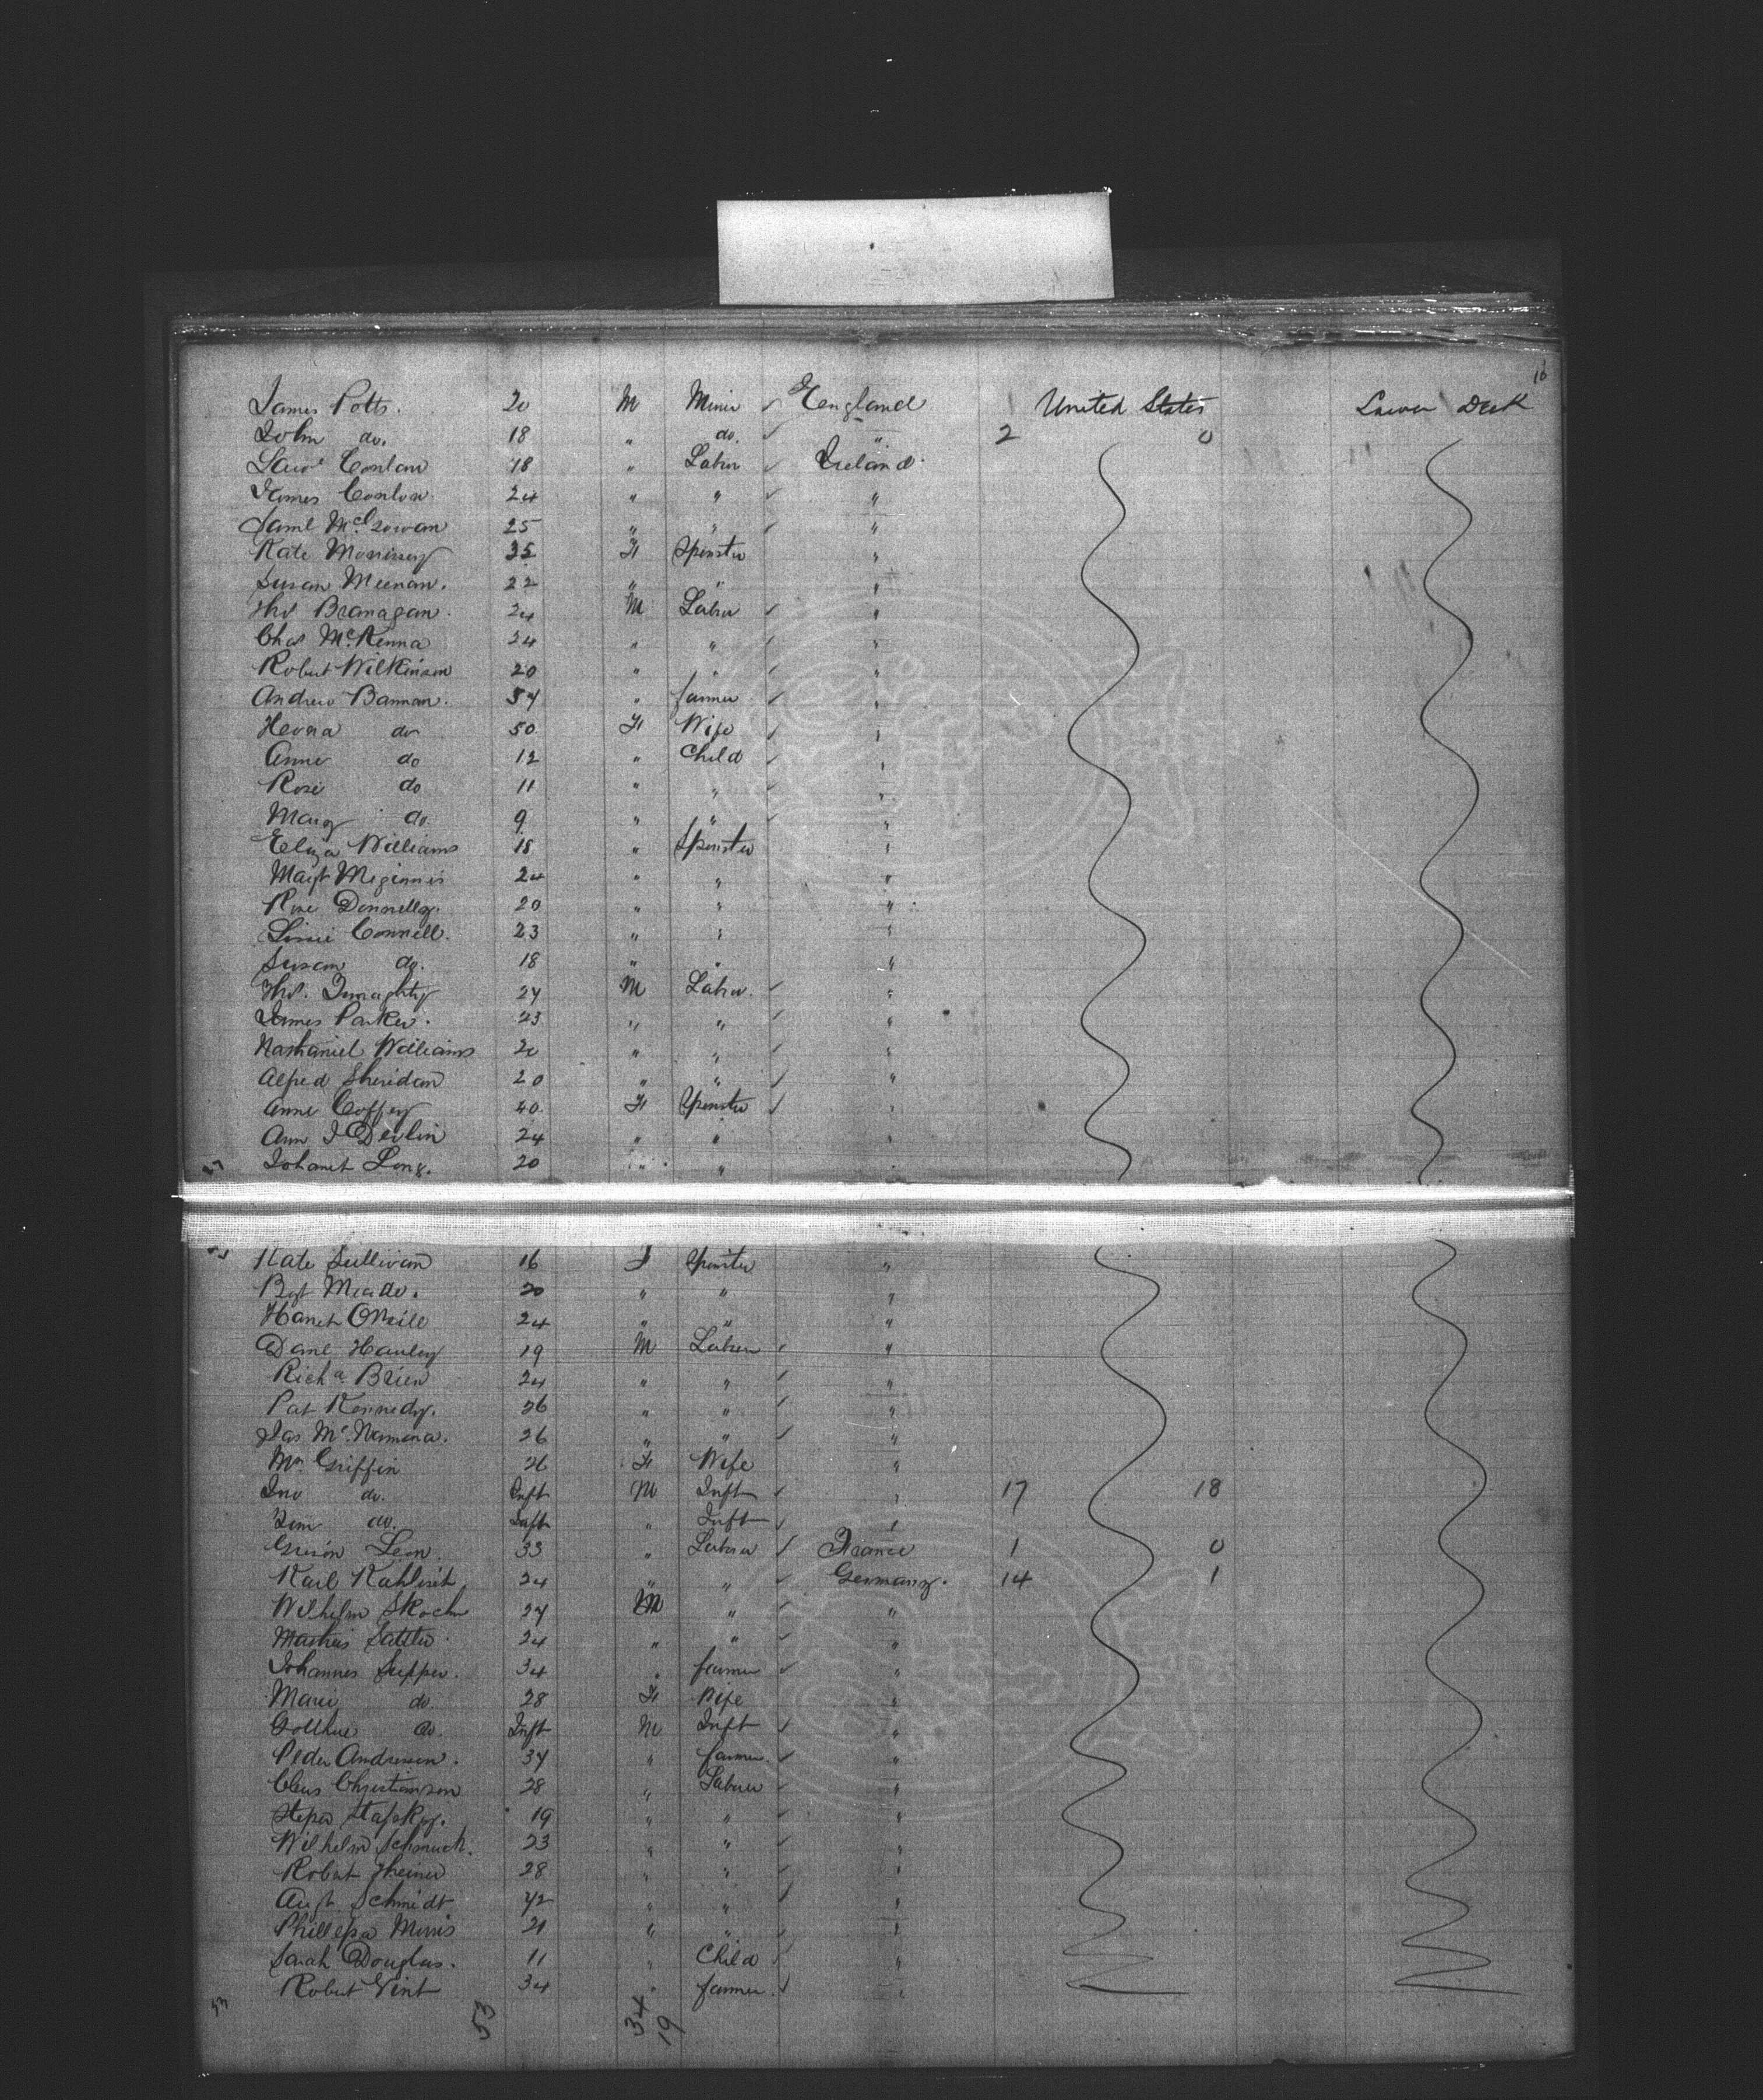 10
James Potts. 20 M Miner ✓ England United States Lower Deck
John do. 18 " do. ✓ " 2 0
Lawe Conlan 18 " Labr ✓ Ireland.
James Conlon 24 " " ✓ "
Saml McGowan 25 " " ✓ "
Kate Morrisey 35 F Spinster "
Susan Meenan. 22 " " "
Thos Branagan. 24 M Labr ✓ "
Chas McKenna 24 " " ✓ "
Robert Wilkinson 20 " " ✓ "
Andrew Bannan. 54 " farmer ✓ "
do 50 F Wife ✓ "
Anne do 12 " Child ✓ "
Rose do 11 " " ✓ "
Mary do. 9 " " ✓ "
Eliza Williams 18 " Spinster "
Magt Meginnis 24 " " "
Rose Donnelly. 20 " " "
Lissie Connell. 23 " " "
Susan do. 18 " " "
Thos. 24 M Labr. ✓ "
James Parker. 23 " " ✓ "
Nathaniel Williams 20 " " ✓ "
Alfred Sheridan 20 " " ✓ "
Anne Coffey 40 F Spinster ✓ "
Ann J Devlin 24 " " "
27 Johanet Long. 20 " " "
Kate Sullivan 16 F Spinster "
Bgt Meade. 20 " " "
Hanet ONeill 24 " " "
Danl Hauley 19 M Labrer ✓ "
Richd Brien 24 " " ✓ "
Pat Kennedy. 26 " " ✓ "
Jas McNamara. 26 " " ✓ "
Mrs Griffin 26 F Wife "
Jno do. Inft M Inft ✓ " 17 18
do. Inft " Inft ✓ "
Leon. 33 " Labrer ✓ France 1 0
Karl 24 " " ✓ Germany. 14 1
Wilhelm 24 M " ✓ "
Mathis 24 " " ✓ "
Johannes Supper. 34 " farmer ✓ "
Marie do 28 F Wife "
do. Inft M Inft ✓ "
Peder Andresen. 34 " farmer ✓ "
Claus Christianson 28 " Labrer ✓ "
19 " " ✓ "
Wilhelm Schmuck. 23 " " ✓ "
Robert 28 " " ✓ "
Augt Schmidt 42 " " ✓ "
Morris 21 " " ✓ "
Sarah Douglas. 11 " Child ✓ "
53 Robert Vint 34 " farmer. ✓ "
53 34 19